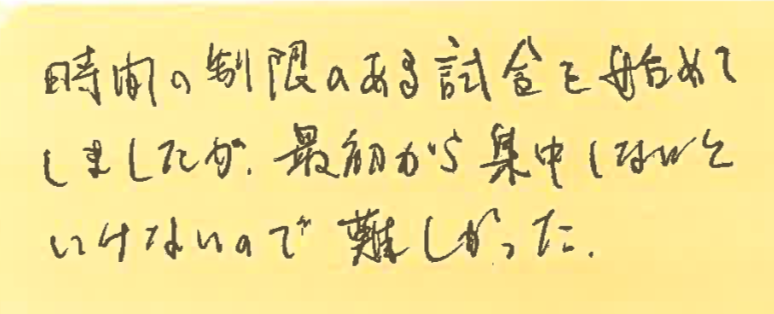 時間の制限のある試合を始めて
しましたが、最初から集中しないと
いけないので難しかった。